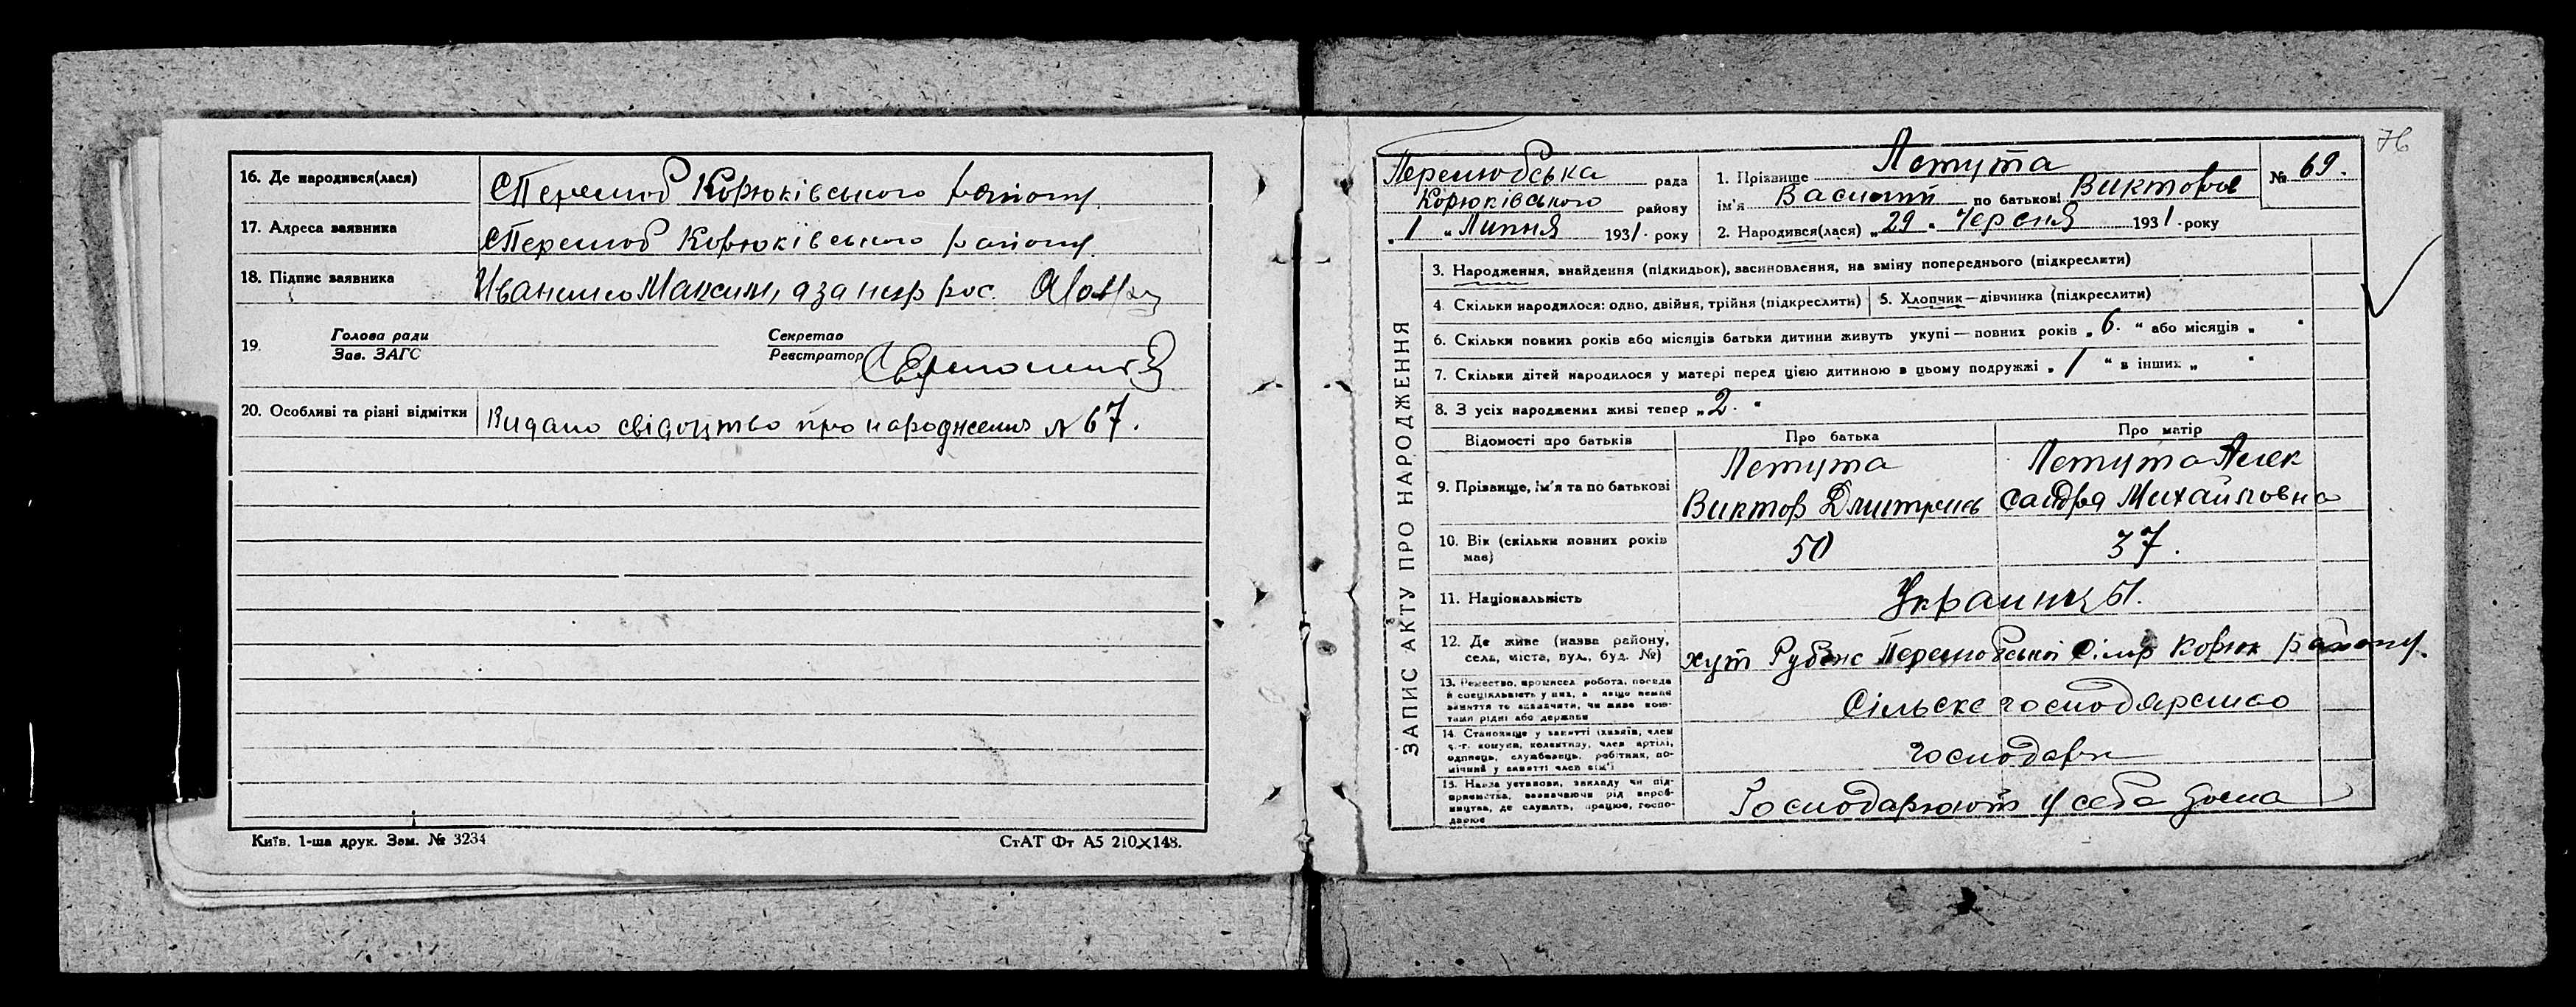 16. Де народився(лася)
с Перелюб Корюківського району.
17. Адреса заявника
с Перелюб Корюківського району.
18. Підпис заявника
Максим, а за негр рос.
19.
Голова ради
Зав. ЗАГС
Секретар
Реєстратор
20. Особливі та різні відмітки
Видано свідоцтво про народження № 67.
Київ. 1-ша друк. Зам. № 3234
СтАТ Фт А5 210×148.
76
Перелюбська рада
Корюківського району
„1 “ Липня 1931. року
1. Прізвище Летута
ім'я Василий по батькові Викторов
2. Народився(лася) „29 “ Червня 1931. року
№ 69.
ЗАПИС АКТУ ПРО НАРОДЖЕННЯ
3. Народження, знайдення (підкидьок), засиновлення, на зміну попереднього (підкреслити)
4. Скільки народилося: одно, двійня, трійня (підкреслити)
5. Хлопчик—дівчинка (підкреслити)
6. Скільки повних років або місяців батьки дитини живуть укупі—повних років „ 6. “ або місяців „ “
7. Скільки дітей народилося у матері перед цією дитиною в цьому подружжі „ 1 “ в інших „ “
8. З усіх народжених живі тепер „ 2. “
Відомості про батьків
Про батька
Про матір
9. Прізвище, ім'я та по батькові
Летута
Виктор Дмитриев
Летута Алек
сандра Михайловна
10. Вік (скільки повних років має)
50
37.
11. Національність
Украинцы.
12. Де живе (назва району,
села, міста, вул., буд. №)
хут Перелюбської Сільр Корюк району.
13. Ремество, промисел, робота, посада
й спеціяльність у них, а якщо немає
заняття то зазначити, чи живе кош-
тами рідні або держави
Сільске господарство
14. Становище у занятті (хазяїн, член
с.-г. комуни, колективу, член артілі,
одинець, службовець, робітник, по-
мічний у занятті член сім'ї
господарі
15. Назва установи, закладу чи під-
приємства, зазначаючи рід вироб-
ництва, де служить, працює, госпо-
дарює
Господарюют у себе дома